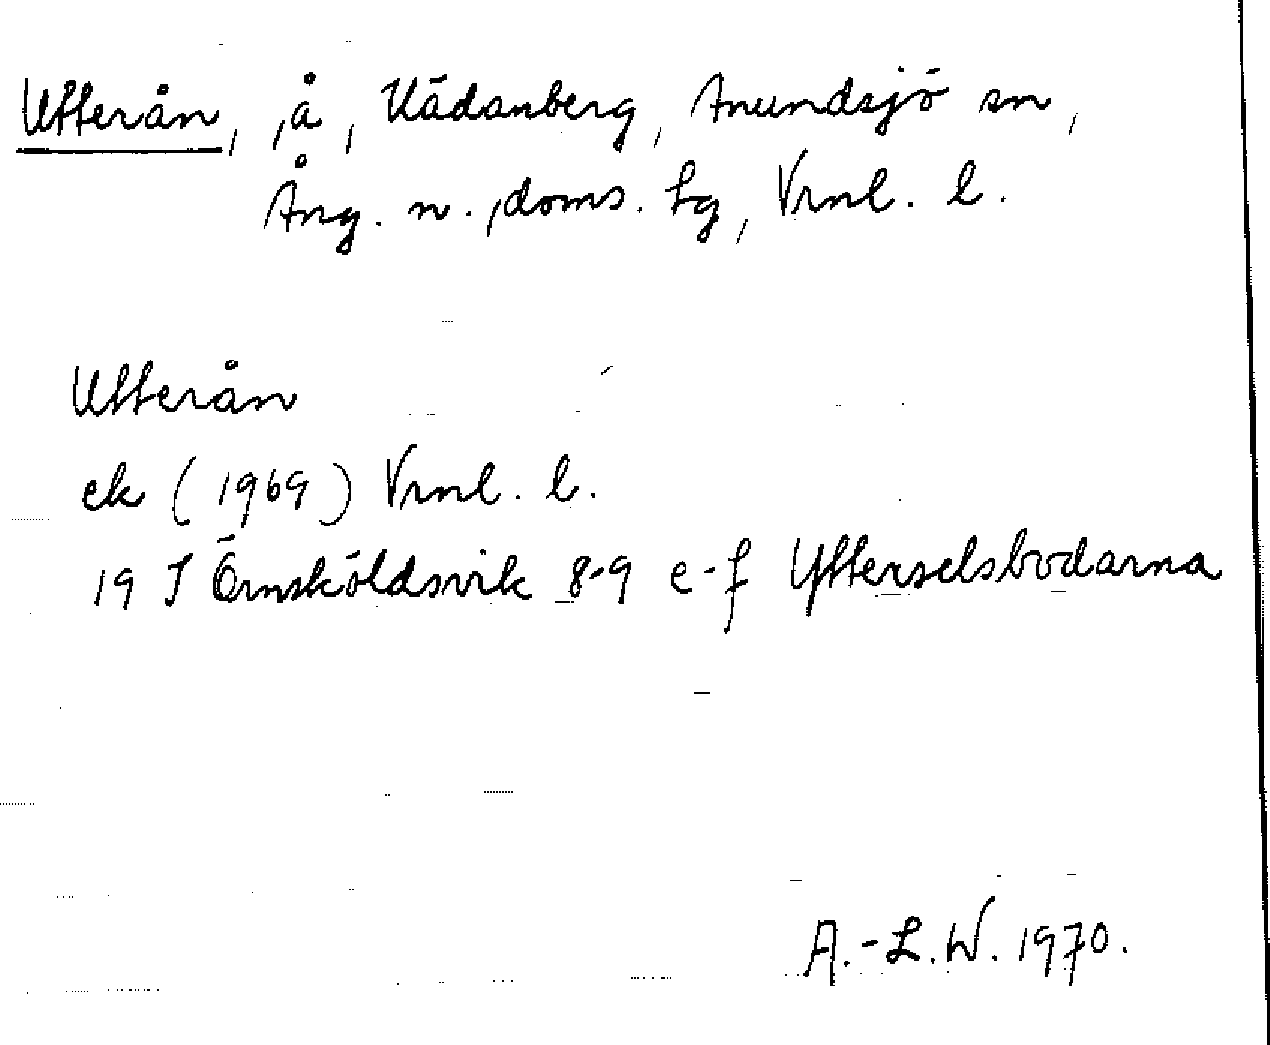 Utterån, å, Kädanberg, Anundsjö sn,
Ång. n., doms. tg, Vrnl. l.
Utterån
ek (1969) Vrnl. l.
19 J Örnsköldsvik 8-9 e-f Ytterselsbodarna
A.-L.W. 1970.